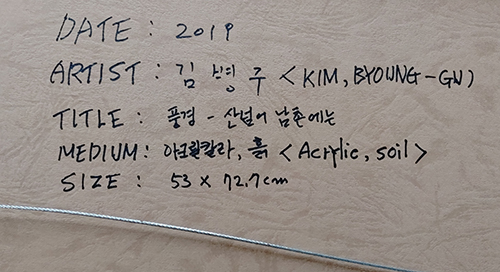 DATE : 2019
ARTIST : 김병구 <KIM, BYOUNG-GU>
TITLE : 풍경 - 산넘어 남촌에는
MEDIUM : 아크릴칼라, 흙 <Acrylic, soil>
SIZE : 53 x 72.7cm